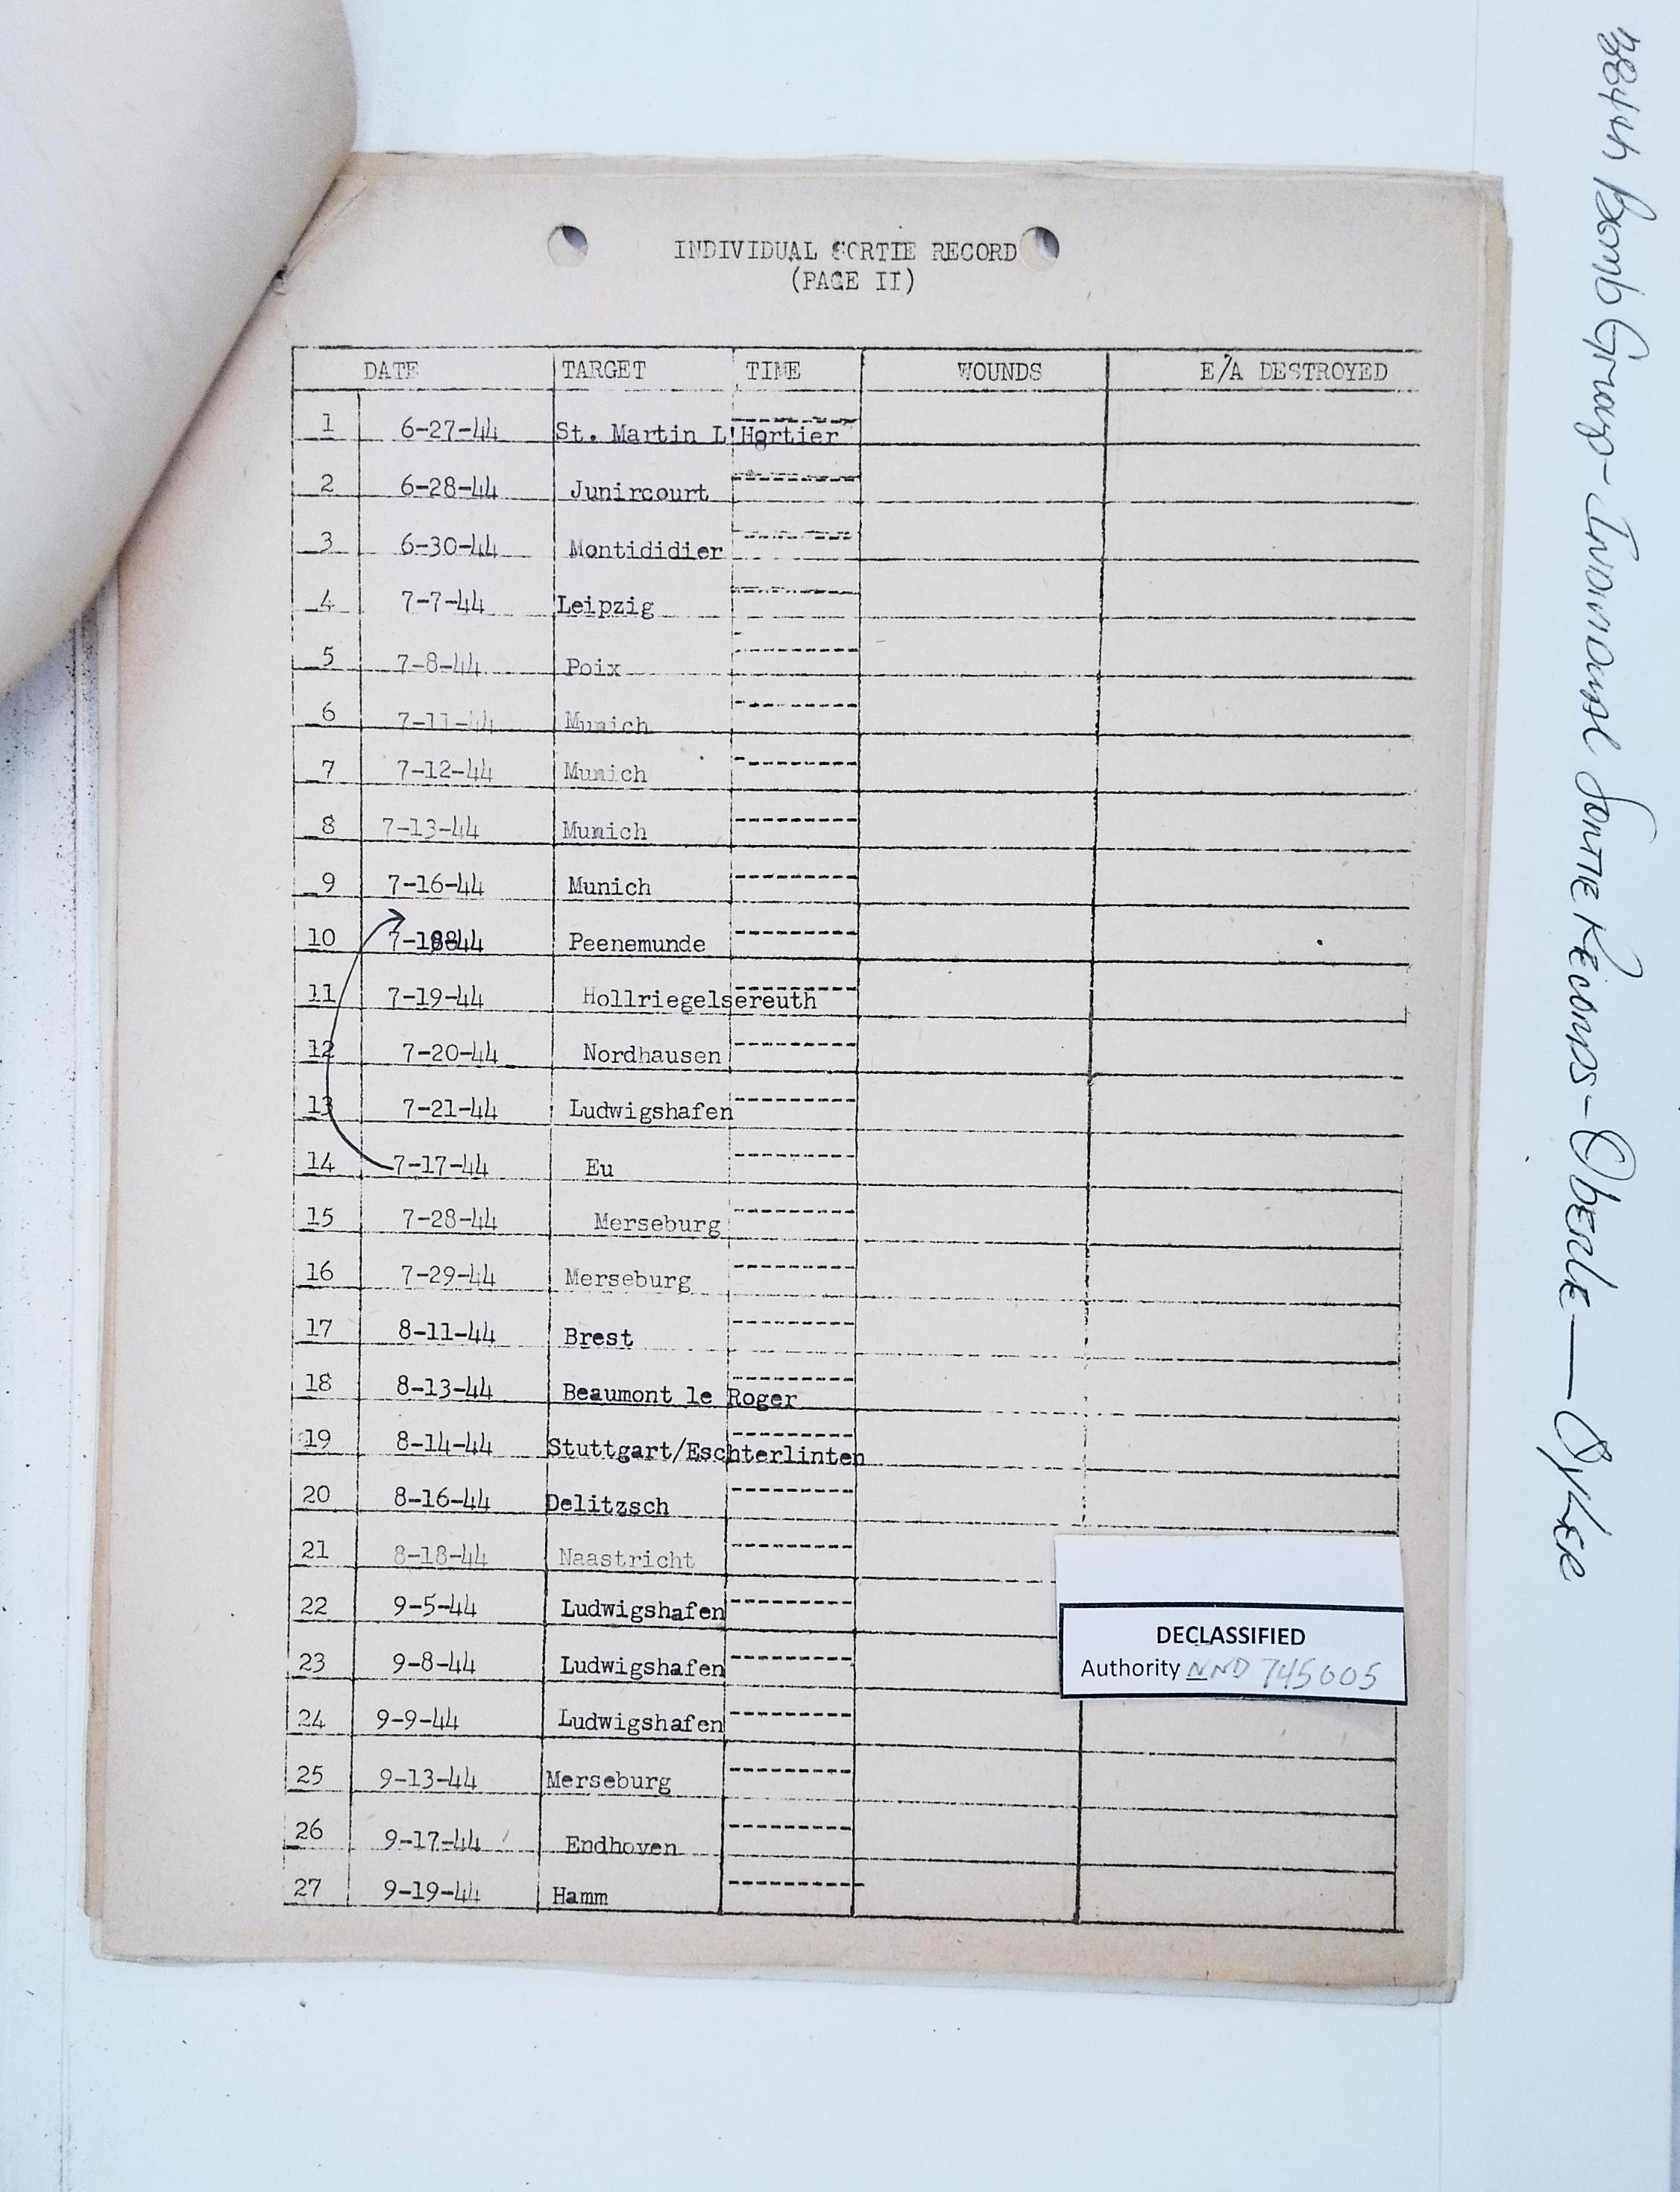 INDIVIDUAL SORTIE RECORD
(PAGE II)
DATE TARGET TIME WOUNDS E/A DESTROYED
1 6-27-44 St. Martin L'Hortier --------
2 6-28-44 Junircourt --------
3 6-30-44 Montididier --------
4 7-7-44 Leipzig --------
5 7-8-44 Poix --------
6 7-11-44 Munich --------
7 7-12-44 Munich --------
8 7-13-44 Munich --------
9 7-16-44 Munich --------
10 7-18-44 Peenemunde --------
11 7-19-44 Hollriegelsereuth --------
12 7-20-44 Nordhausen --------
13 7-21-44 Ludwigshafen --------
14 7-17-44 Eu --------
15 7-28-44 Merseburg --------
16 7-29-44 Merseburg --------
17 8-11-44 Brest --------
18 8-13-44 Beaumont le Roger --------
19 8-14-44 Stuttgart/Eschterlinten --------
20 8-16-44 Delitzsch --------
21 8-18-44 Naastricht --------
22 9-5-44 Ludwigshafen --------
23 9-8-44 Ludwigshafen --------
24 9-9-44 Ludwigshafen --------
25 9-13-44 Merseburg --------
26 9-17-44 Endhoven --------
27 9-19-44 Hamm --------
DECLASSIFIED
Authority NND 745005
384th Bomb Group - Individual Sortie Records - Oberle — Oyler